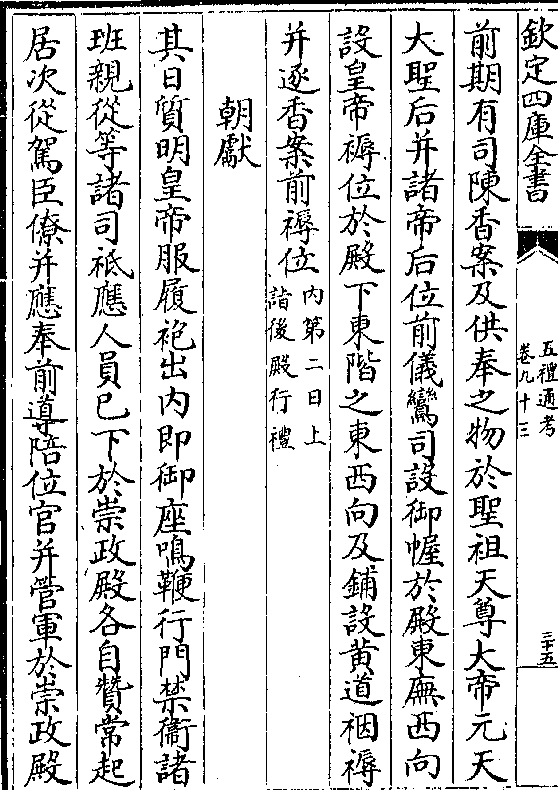 欽定四庫全書
五禮通考
卷九十三
三十五
前期有司陳香案及供奉之物於聖祖天尊大帝元天
大聖后并諸帝后位前儀鸞司設御幄於殿東廡西向
設皇帝褥位於殿下東階之東西向及鋪設黄道裀褥
并逐香案前褥位内第二日上
詣後殿行禮
朝獻
其日質明皇帝服履袍出内即御座鳴鞭行門禁衞諸
班親從等諸司祗應人員已下於崇政殿各自贊常起
居次從駕臣僚并應奉前導陪位官并管軍於崇政殿